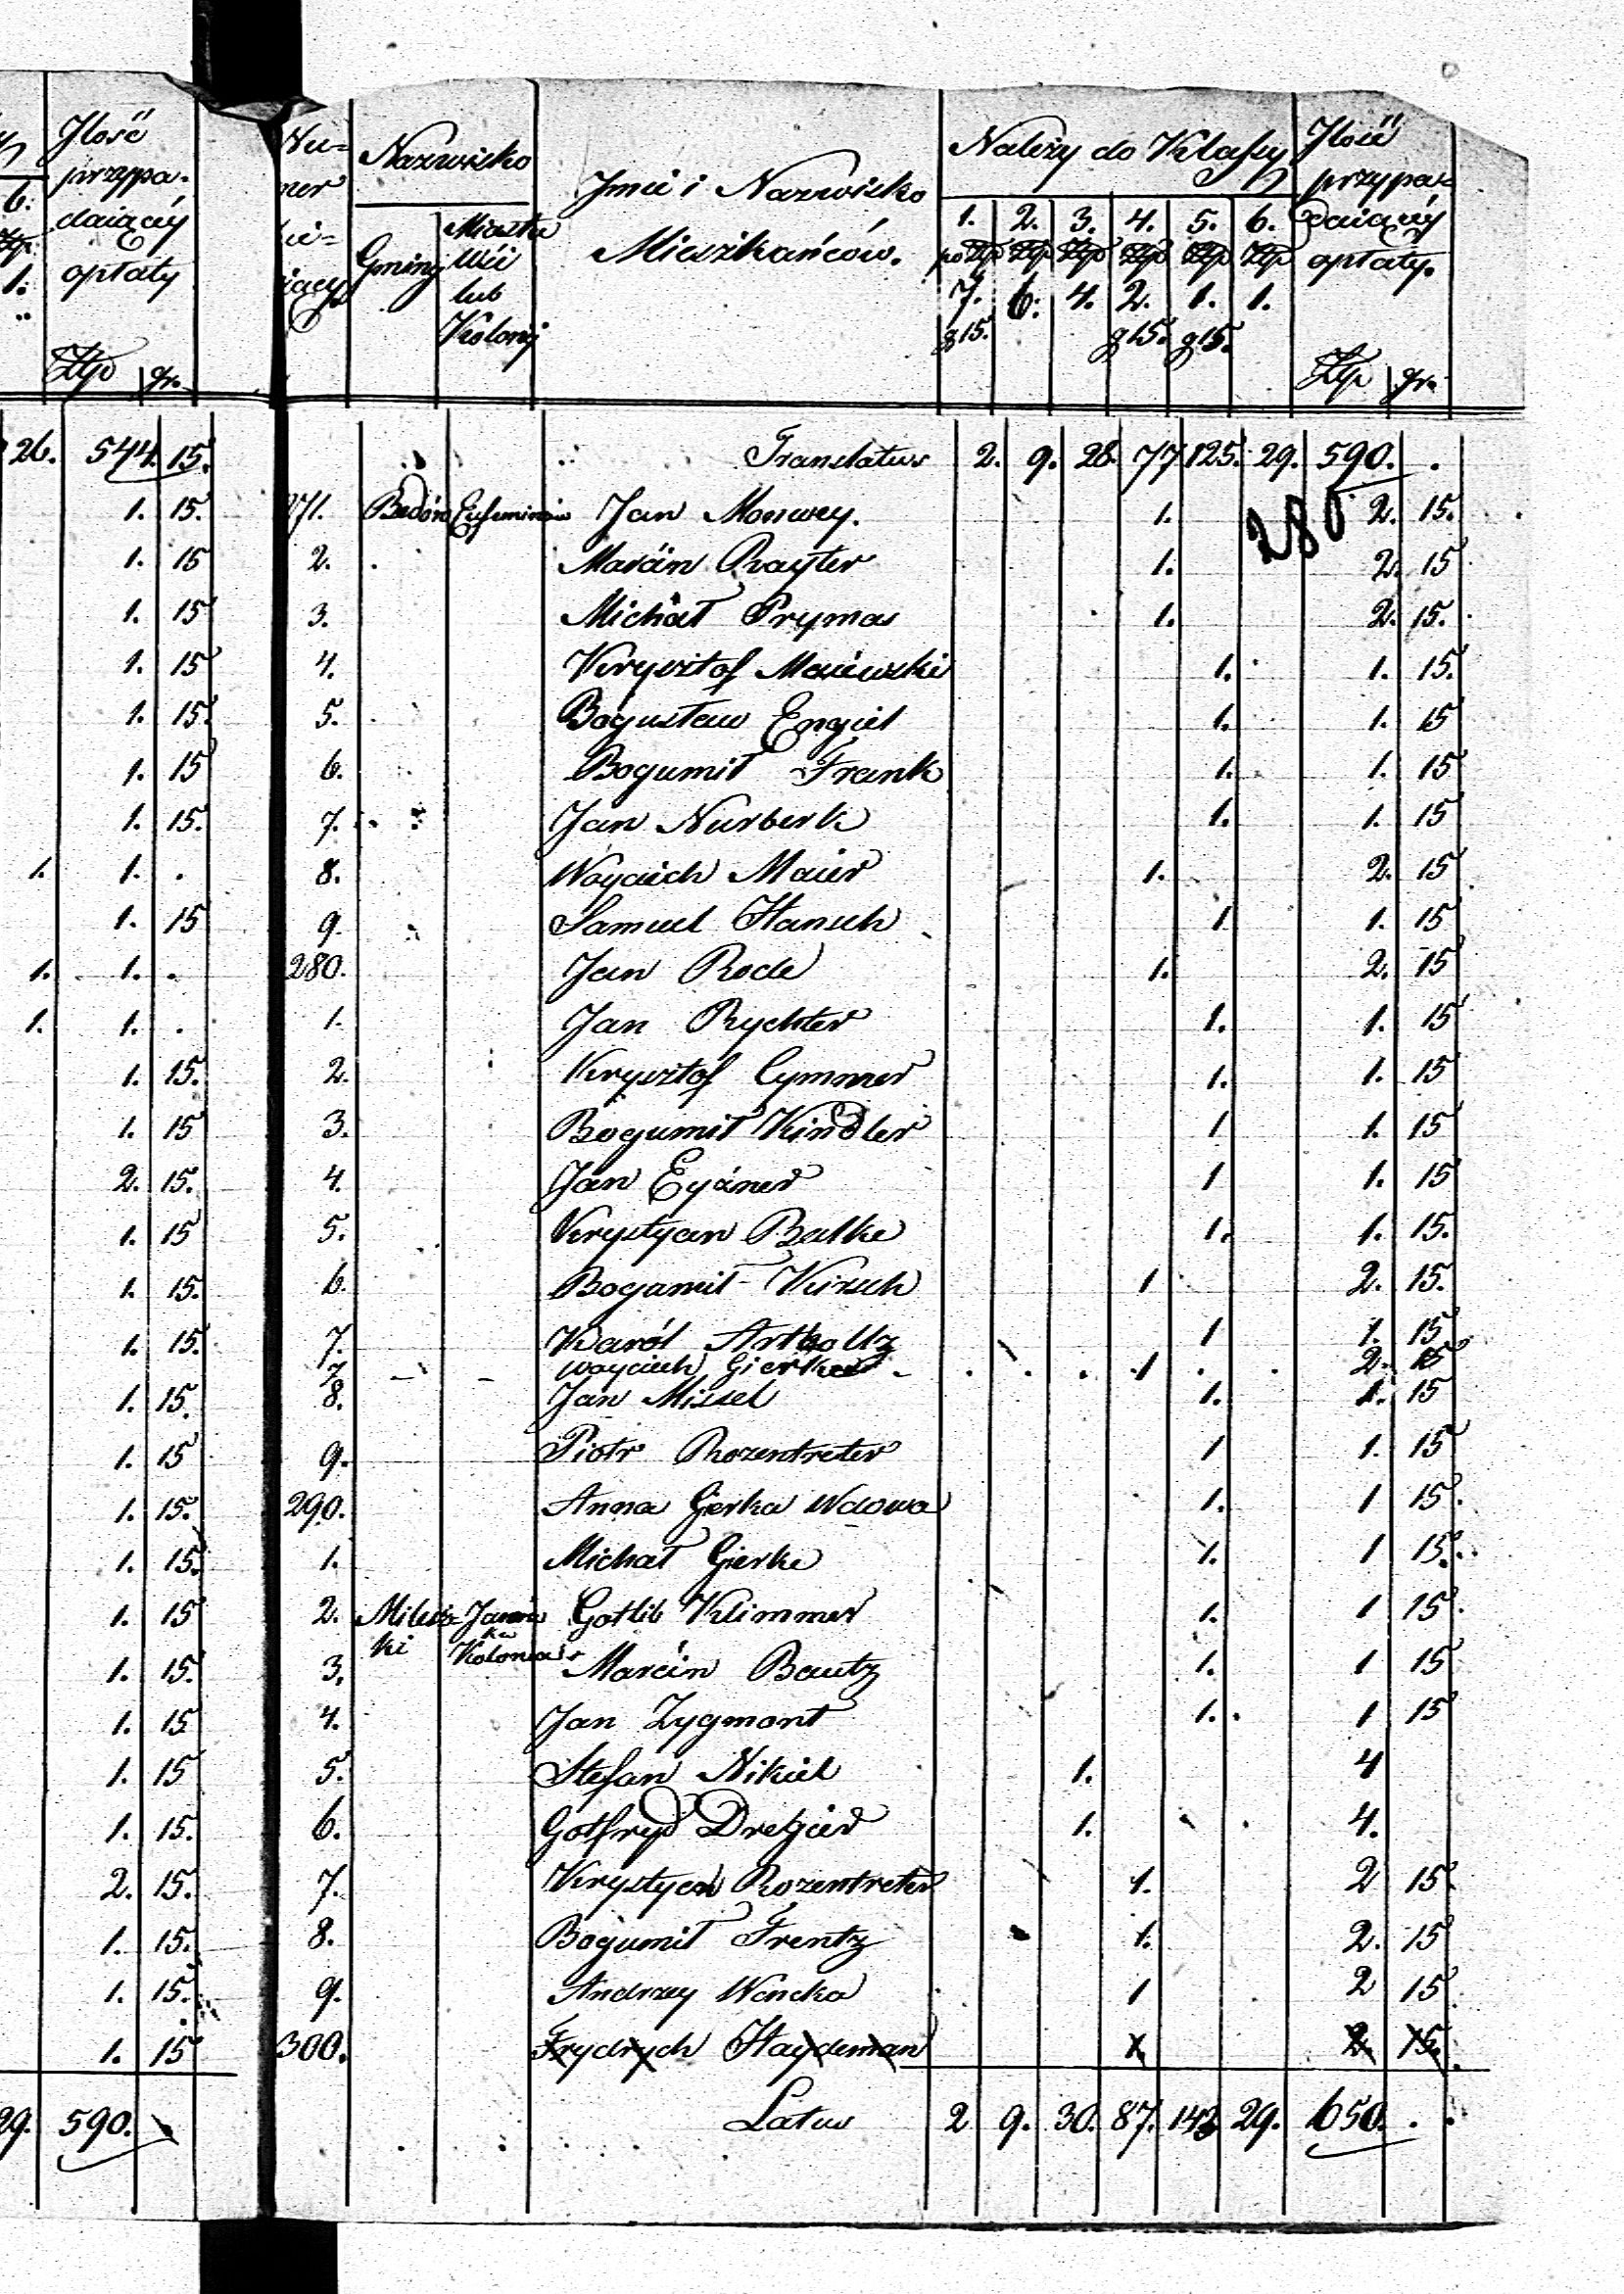 Jlość
przypa-
daiącéy
opłaty
Złp gr.
6.
Złp
1.
26. 544. 15.
1. 15.
1. 15
1. 15
1. 15
1. 15.
1. 15
1. 15.
1. 1. .
1. 15
1. 1. .
1. 1. .
1. 15.
1. 15
2. 15.
1. 15
1. 15.
1. 15.
1. 15.
1. 15
1. 15.
1. 15.
1. 15
1. 15.
1. 15
1. 15
1. 15.
2. 15.
1. 15.
1. 15.
1. 15
29. 590.
Nu-
mer
Nazwisko
Gminy
Miasta
Wsi
lub
Kolonij
Jmie i Nazwisko
Mieszkańców.
Należy do Klassy
1. 2. 3. 4. 5. 6.
po Złp Złp Złp Złp Złp Złp
7. 6. 4. 2. 1. 1.
g 15. g 15. g 15.
Jlość
przypa-
daiącéy
opłaty.
Złp gr.
Translatus 2. 9. 28. 77 125. 29. 590. .
280
271. Bedoń Eufeminów Jan Monwey. 1. 2. 15.
2. Marcin Rayter 1. 2. 15
3. Michał Prymas 1. 2. 15.
4. Krysztof Maiewski 1. 1. 15.
5. Bogusław Engiel 1. 1. 15
6. Bogumił Frank 1. 1. 15
7. Jan Nurberk 1. 1. 15
8. Woyciech Maier 1. 2. 15
9. Samuel Hansch 1 1. 15
280. Jan Rode 1. 2. 15
1. Jan Rychter 1. 1. 15
2. Krysztof Cymmer 1. 1. 15
3. Bogumił Kindler 1 1. 15
4. Jan Eyzner 1 1. 15
5. Krystyan Balke 1. 1. 15.
6. Bogumił Kirsch 1 2. 15.
7. Karól Artholtz 1 1. 15
7. - - Woyciech Gierke - . . . 1 . . 2. 15
8. Jan Missel 1. 1. 15
9. Piotr Rozentreter 1 1. 15
290. Anna Gierka Wdowa 1. 1 15.
1. Michał Gierke 1. 1 15.
2. Milecz- Janów Gotlib Klimmer 1. 1 15.
ki ka
3. Kolonia Marcin Bautz 1. 1 15
4. Jan Zygmont 1. 1 15
5. Stefan Nikiel 1. 4
6. Gotfryd Dreżier 1. 4.
7. Krystyan Rozentreter 1. 2 15
8. Bogumił Frentz 1. 2. 15
9. Andrzey Wencka 1 2 15
300. Frydrych Haydeman 1. 2. 15.
Latus 2 9. 30. 87. 142 29. 650. .